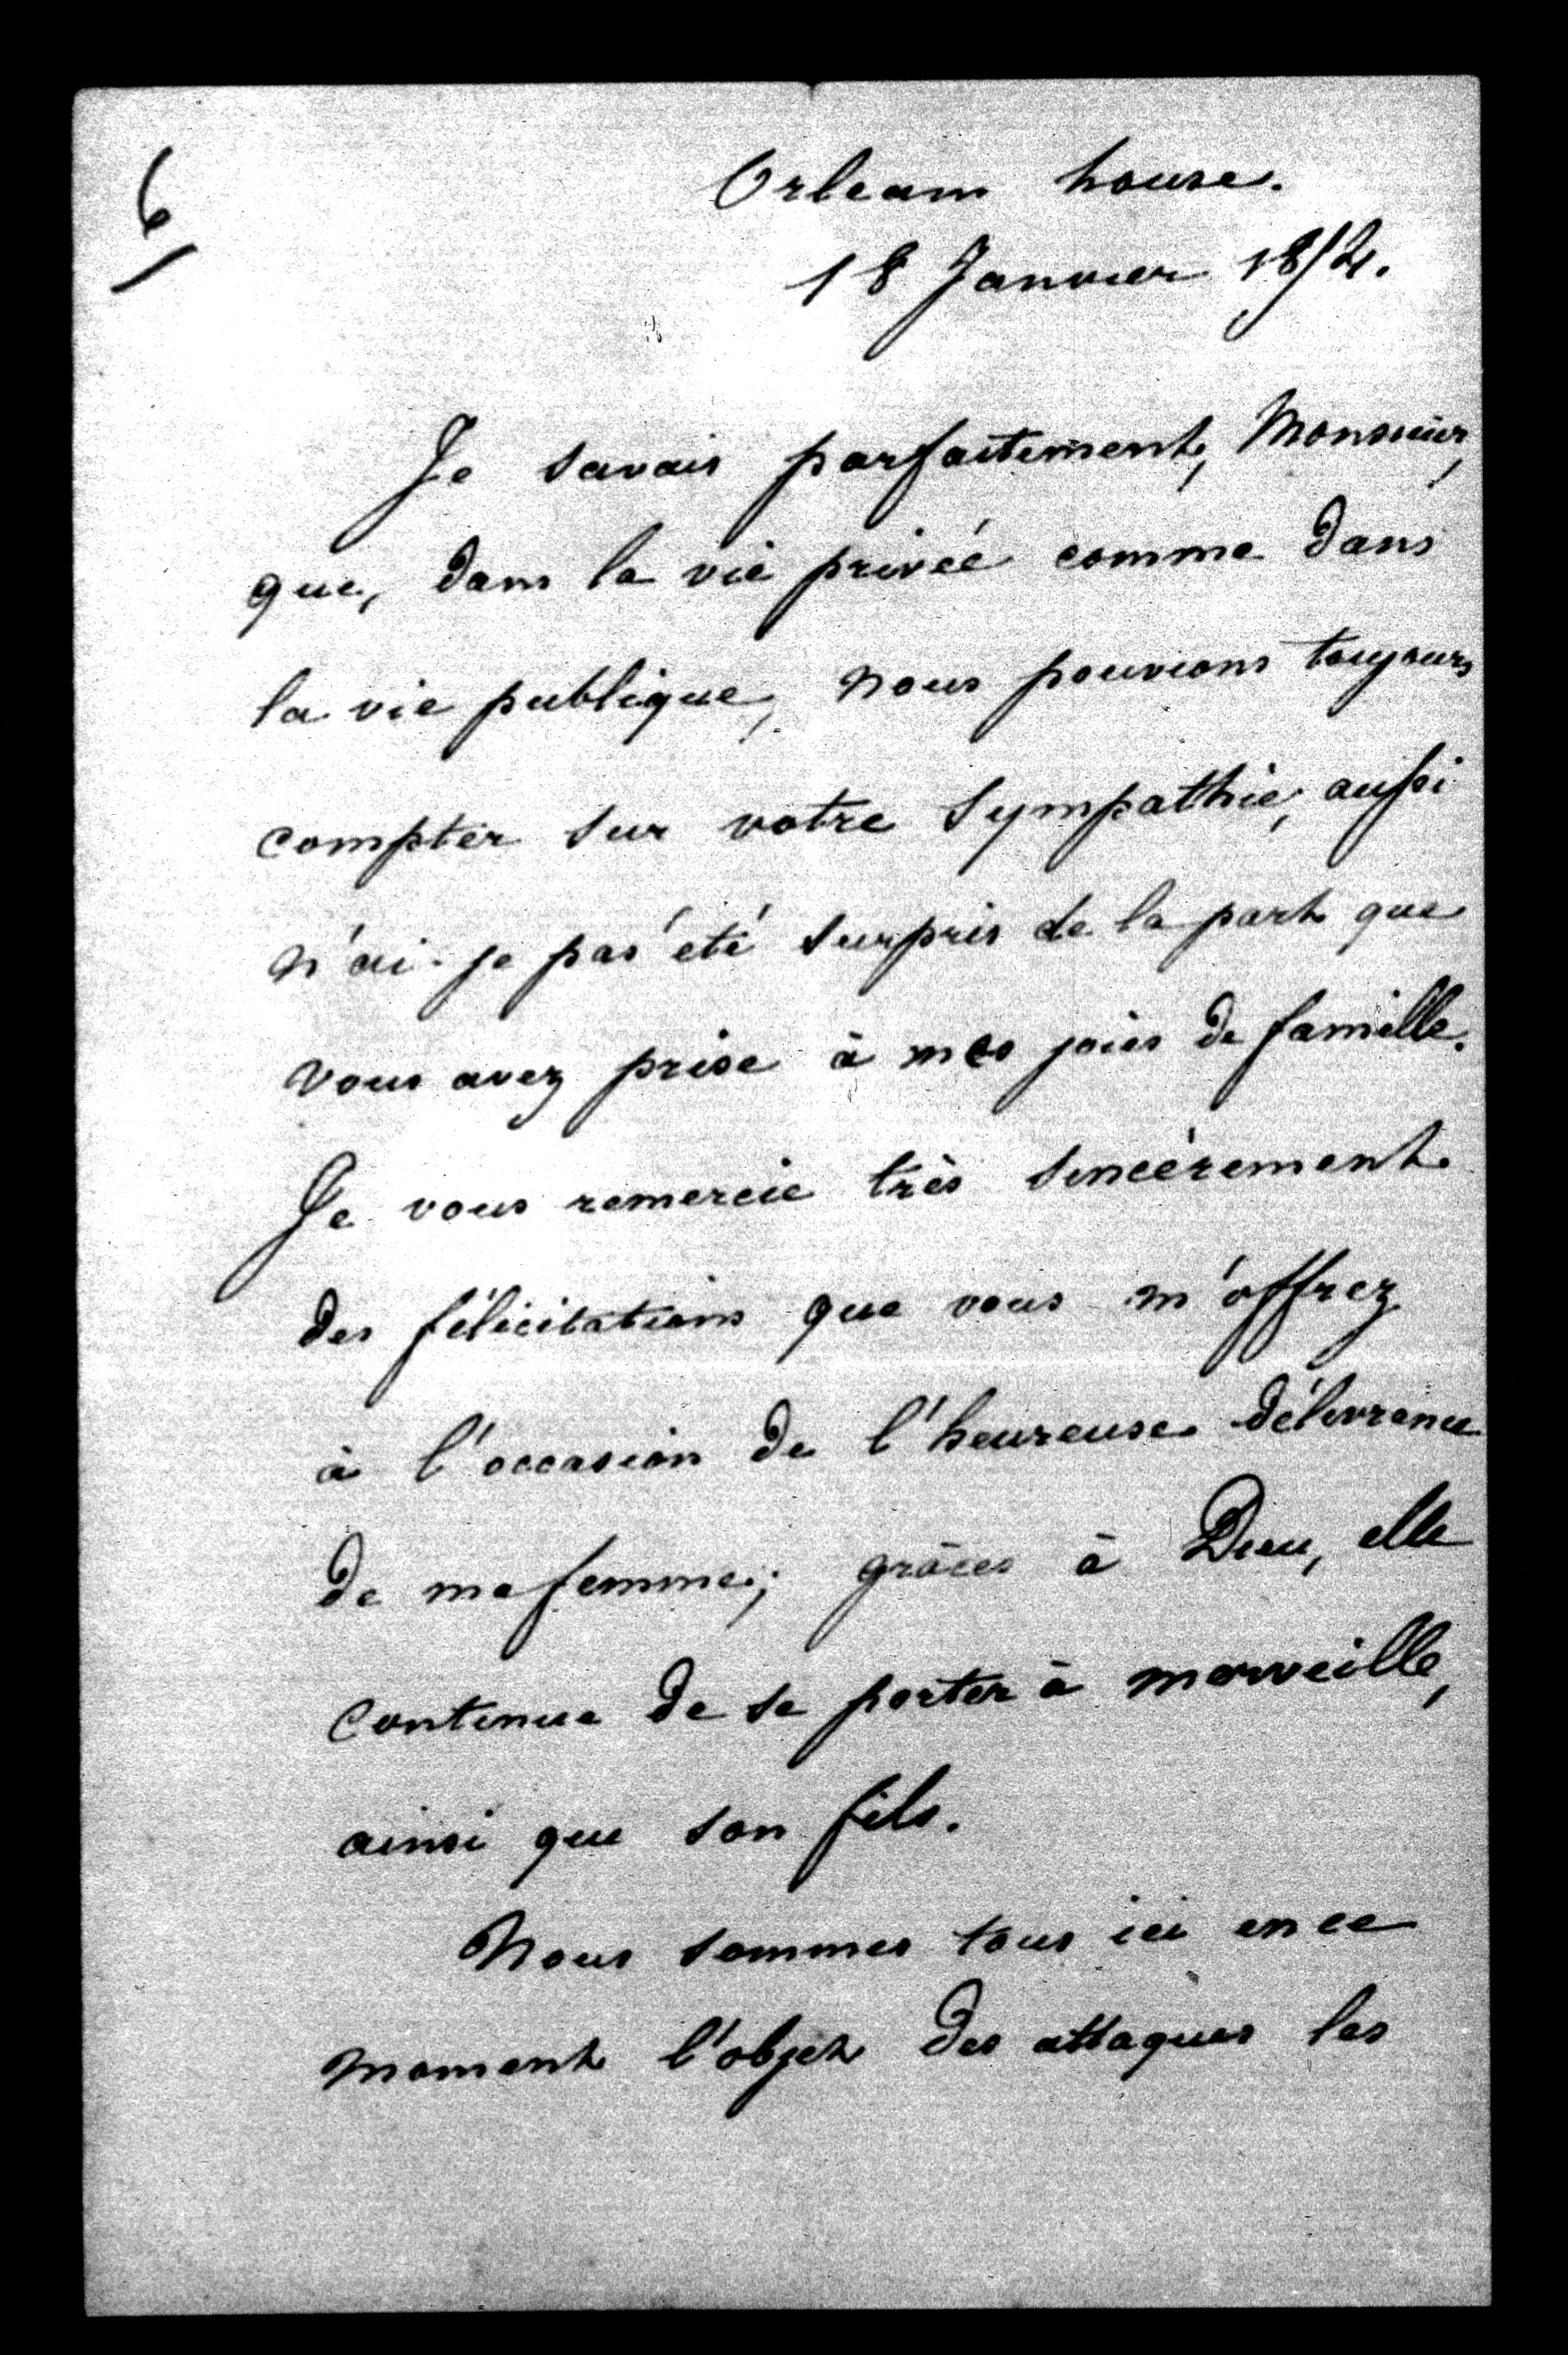 6
Orleans house.
18 Janvier 1854.
Je savais parfaitement, Monsieur,
que, dans la vie privée comme dans
la vie publique, nous pouvions toujours
compter sur votre sympathie, aussi
n'ai-je pas été surpris de la part que
vous avez prise à mes joies de famille.
Je vous remercie très sincèrement
des félicitations que vous m'offrez
à l'occasion de l'heureuse délivrance
de ma femme; grâces à Dieu, elle
continue de se porter à merveille,
ainsi que son fils.
Nous sommes tous ici en ce
moment l'objet des attaques les